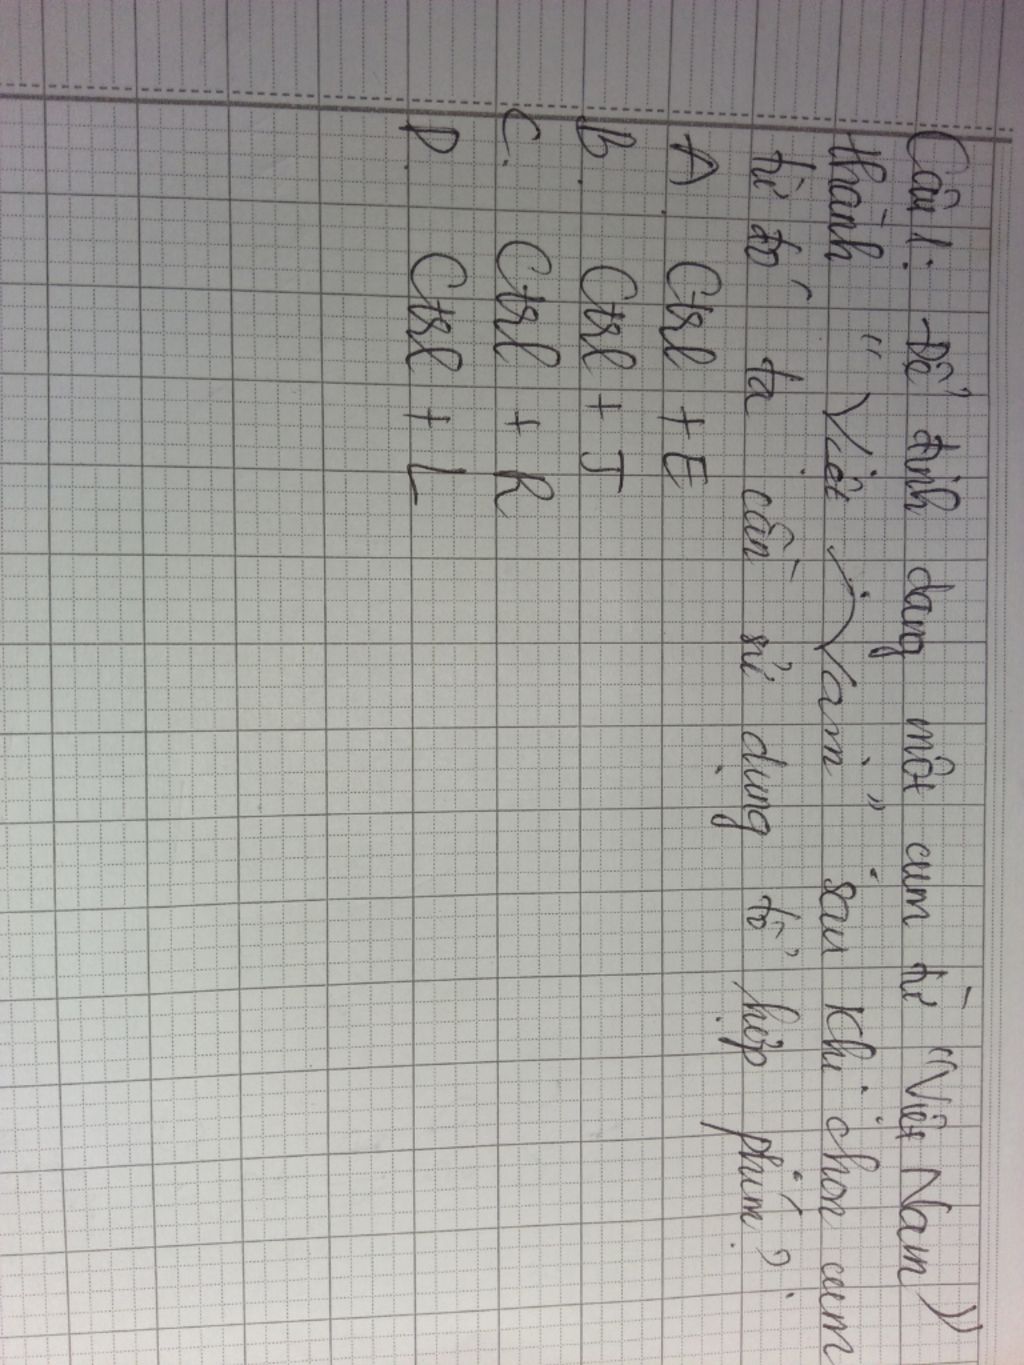 Câu 1: Để định dạng một cụm từ "Việt Nam"
thành "Việt Nam" sau khi chọn cụm
từ đó, ta cần sử dụng tổ hợp phím?
A. Ctrl + E
B. Ctrl + J
C. Ctrl + R
D. Ctrl + L